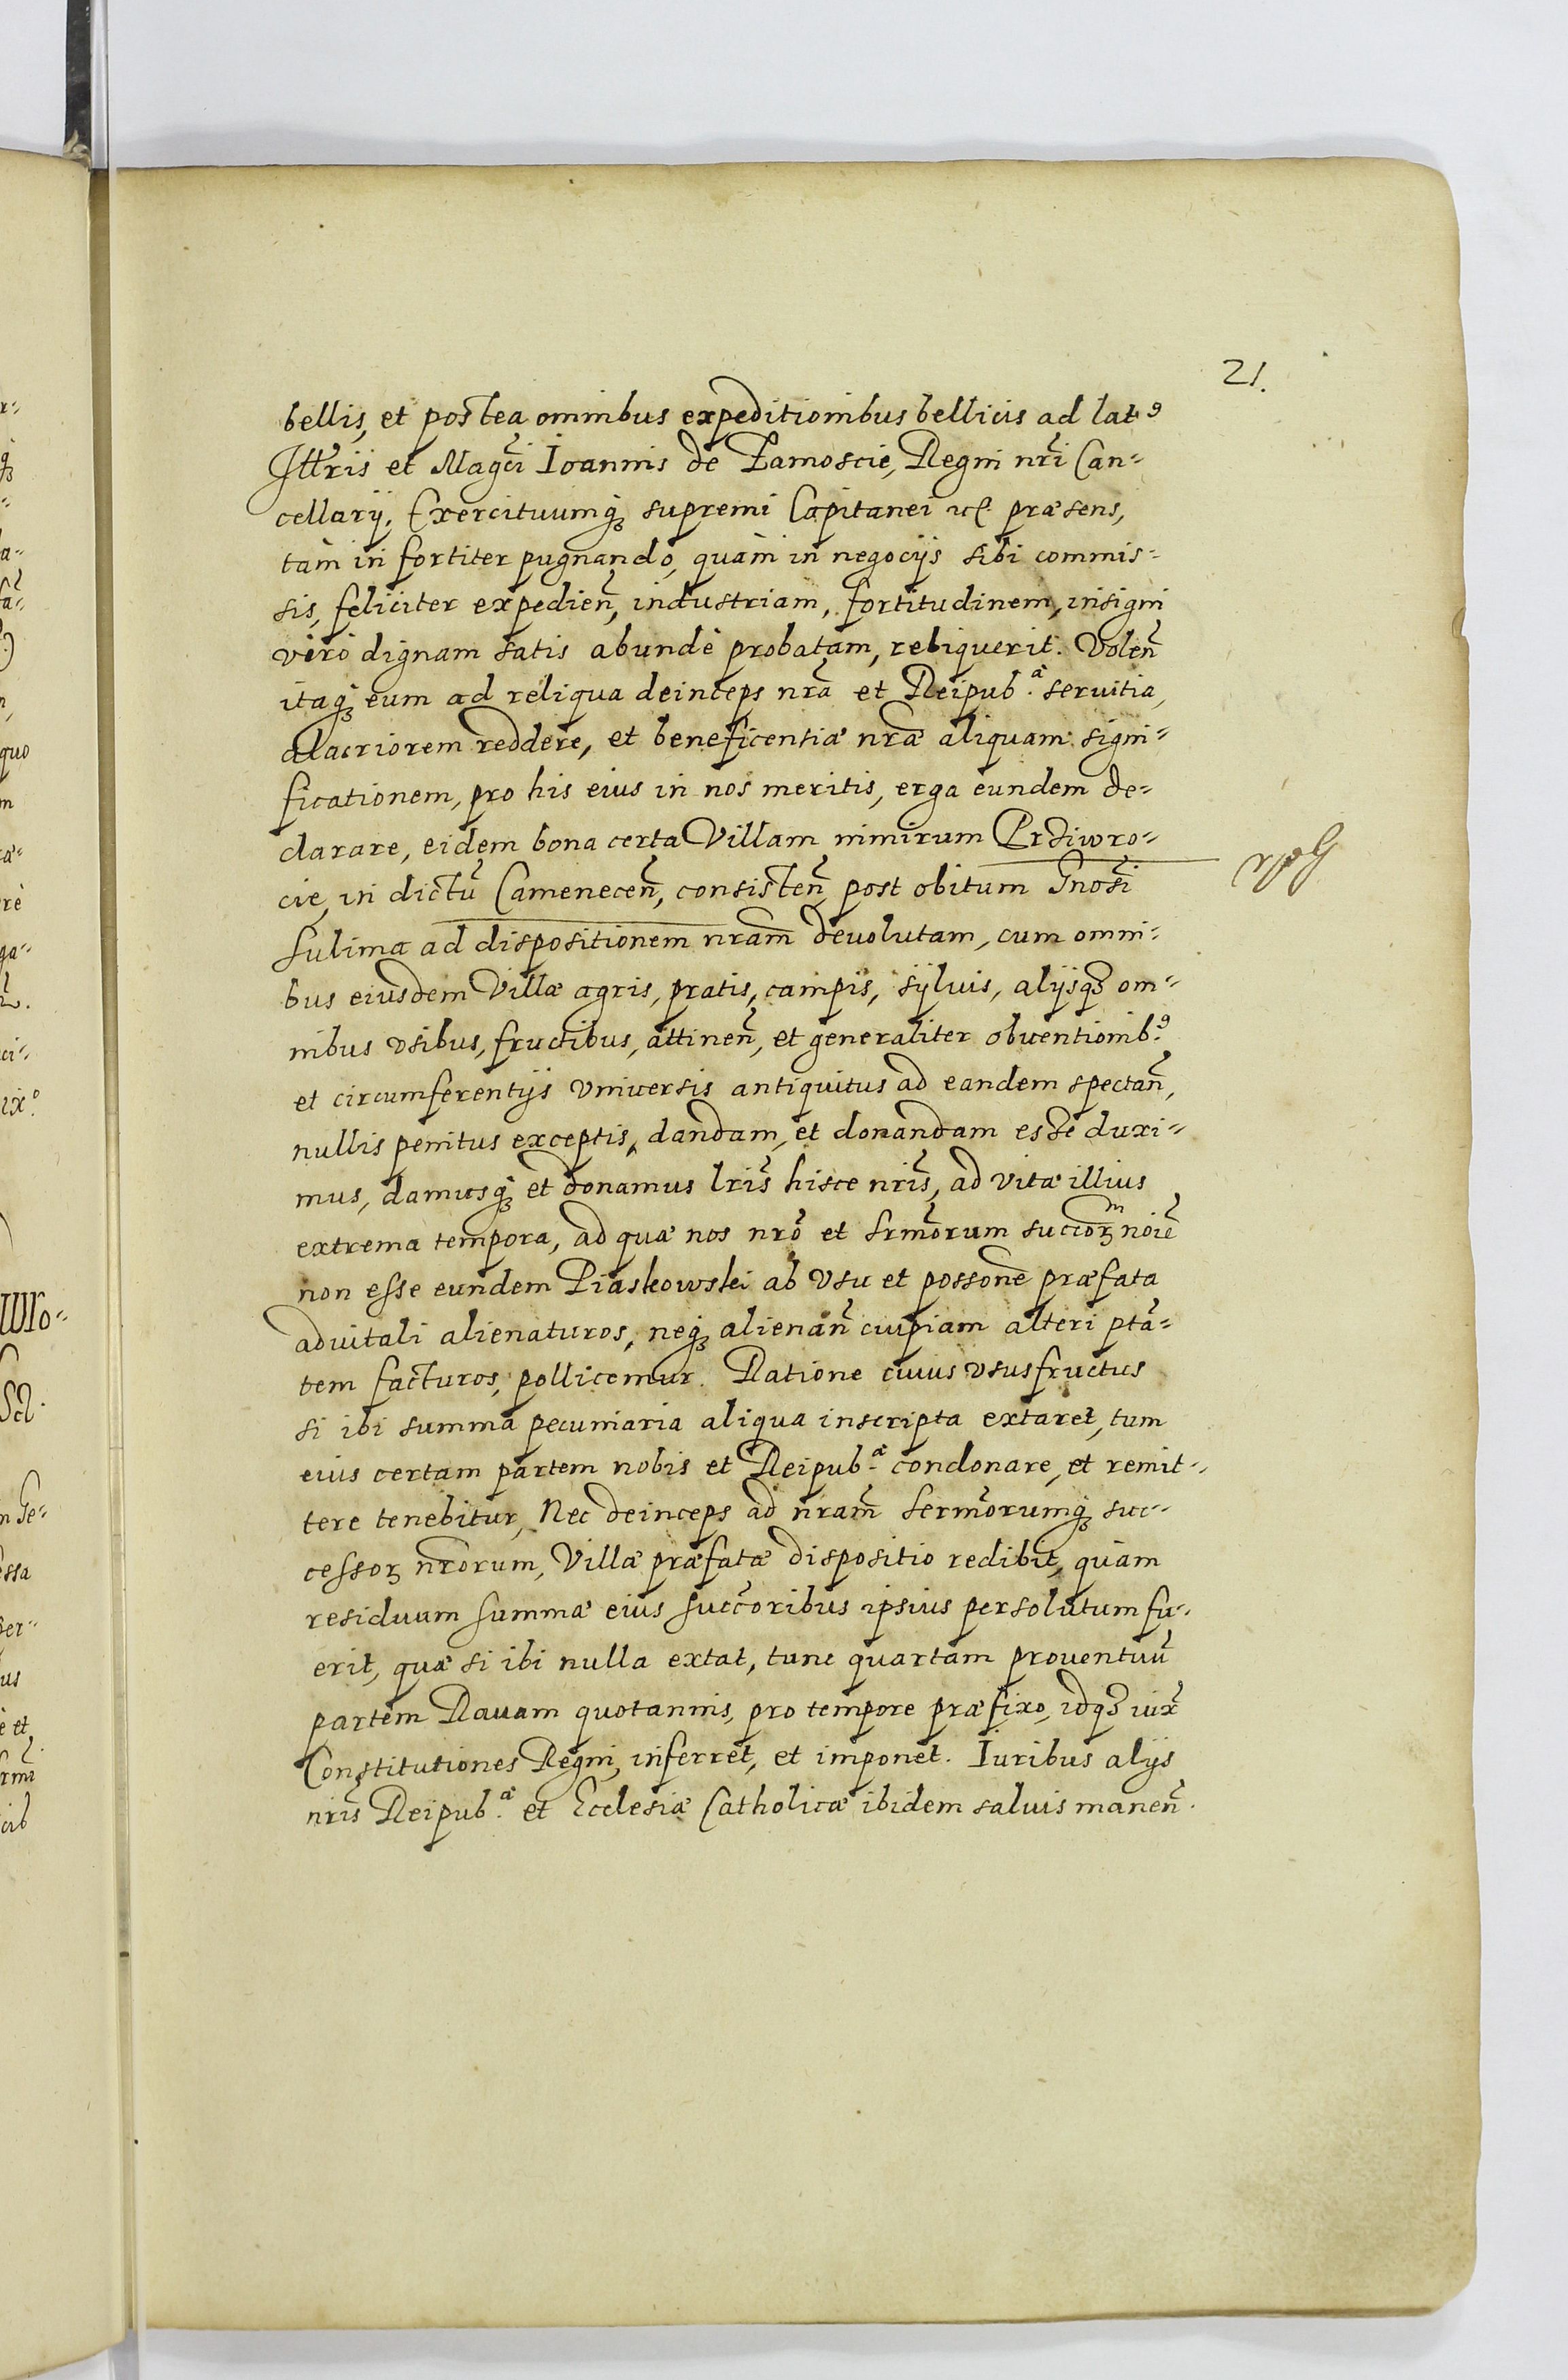 21.
bellis, et postea omnibus expeditionibus bellicis ad latꝰ
Illr̃is et Magc̃i Ioannis de Zamoscie, Regni nr̃i Can-
cellarij, Exercituumq̃ supremi Capitanei etc. præsens,
tàm in fortiter pugnando, quàm in negocijs sibi commis-
sis, feliciter expedien̄, industriam, fortitudinem, insigni
viro dignam satis abundè probatam, reliquerit. Volen̄
itaq̃ eum ad reliqua deinceps nr̃a et Reipub.ᵃᵉ seruitia,
alacriorem reddere, et beneficentiæ nr̃æ aliquam signi-
ficationem, pro his eius in nos meritis, erga eundem de-
clarare, eidem bona certa Villam nimirum Prdiwro-
cie, in dictũ Camenecen̄, consisten̄, post obitum Gnosi
Sulima ad dispositionem nr̃am deuolutam, cum omni-
bus eiusdem Villæ agris, pratis, campis, syluis, alijsq̃ om-
nibus vsibus, fructibus, attinen̄, et generaliter obuentionib.ꝰ
et circumferentijs vniuersis antiquitus ad eandem spectan̄,
nullis penitus exceptis, dandam, et donandam esse duxi-
mus, damusq̃ et donamus lr̃is hisce nr̃is, ad vitæ illius
extrema tempora, ad quæ nos nr̃o et Srm̃orum succoꝝᵐ noĩe
non esse eundem Piaskowski ab vsu et possone præfata
aduitali alienaturos, neq̃ alienan̄ cuipiam alteri ptã-
tem facturos, pollicemur. Ratione cuius vsusfructus
si ibi summa pecuniaria aliqua inscripta extaret, tum
eius certam partem nobis et Reipub.ᵃᵉ condonare, et remit-
tere tenebitur, Nec deinceps ad nr̃am Serm̃orumq̃ suc-
cessoꝝ nr̃orum, Villæ præfatæ dispositio redibit, quàm
residuum summæ eius succ̃oribus ipsius persolutum fu-
erit, quæ si ibi nulla extat, tunc quartam prouentuũ
partem Rauam quotannis, pro tempore præfixo, idq̃ iux̃
Constitutiones Regni, inferret, et imponet. Iuribus alijs
nr̃is Reipub.ᵃᵉ et Ecclesiæ Catholicæ ibidem saluis manen̄.